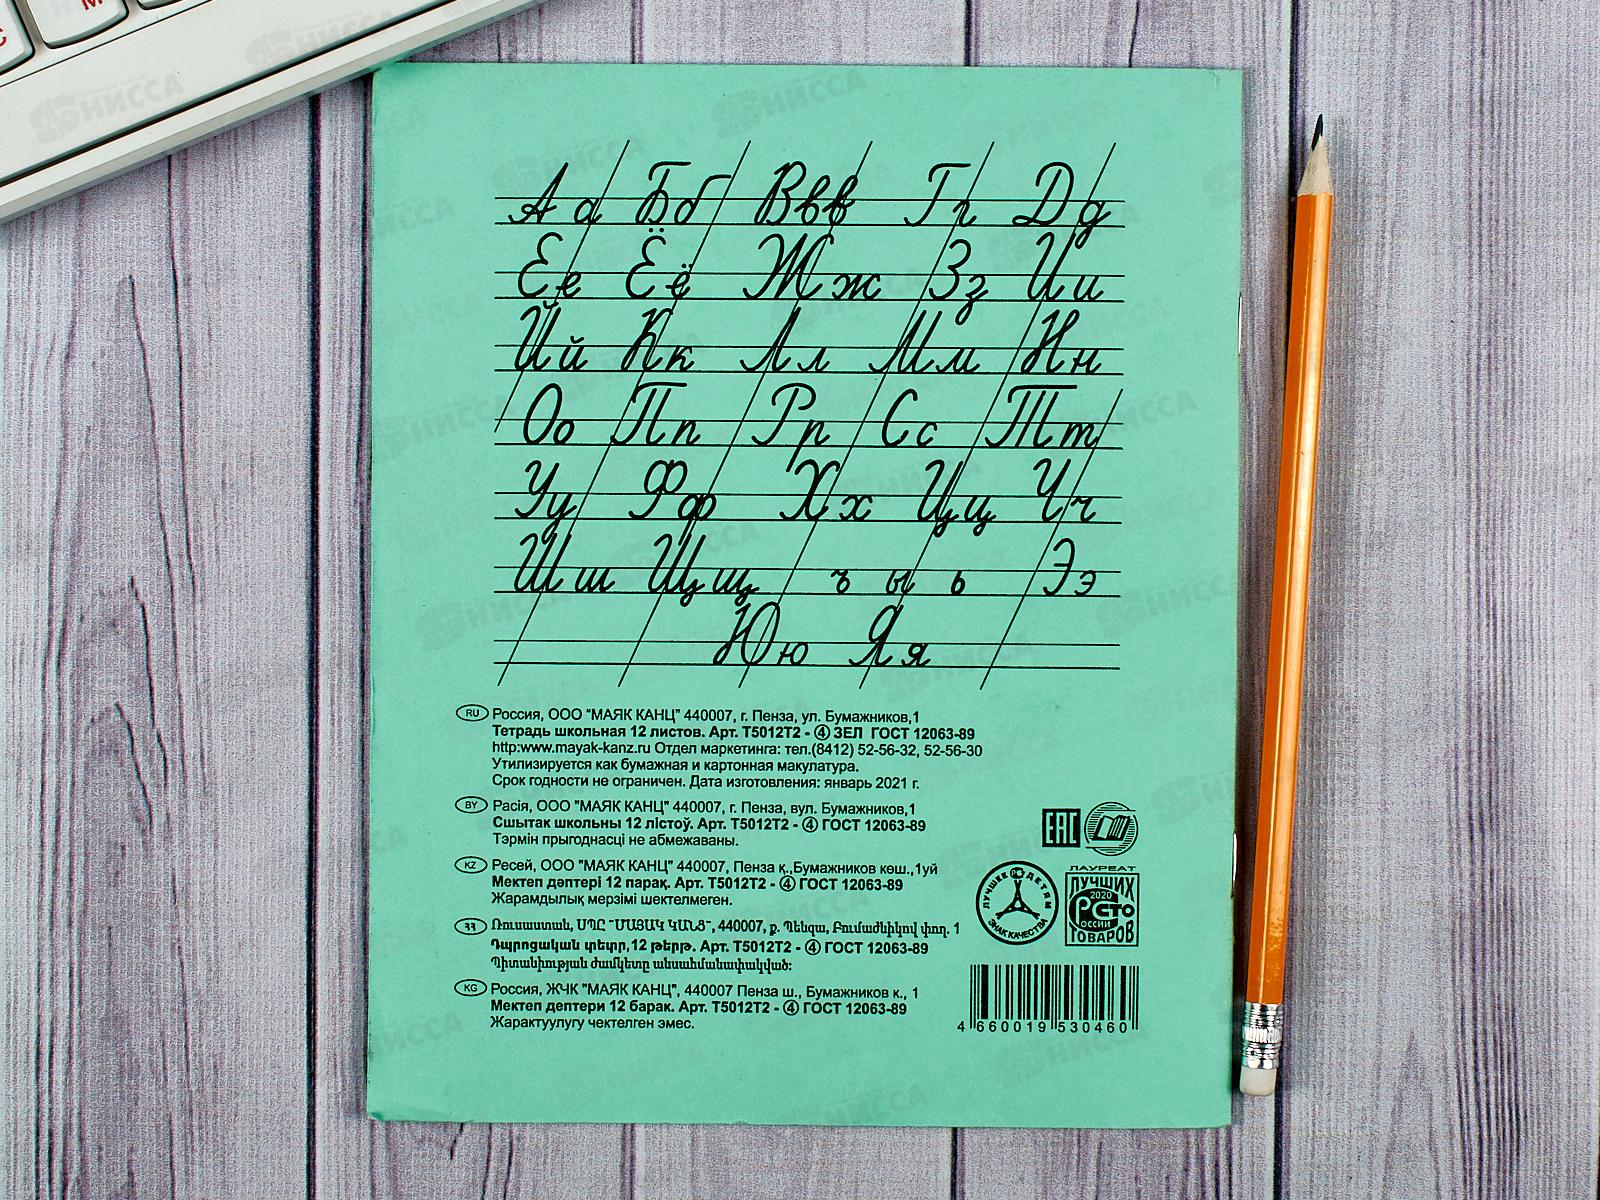 А а Б б В в в Г г Д д
Е е Ё ё Ж ж З з И и
Й й К к Л л М м Н н
О о П п Р р С с Т т
У у Ф ф Х х Ц ц Ч ч
Ш ш Щ щ ъ ы ь Э э
Ю ю Я я
RU Россия, ООО "МАЯК КАНЦ" 440007, г. Пенза, ул. Бумажников,1
Тетрадь школьная 12 листов. Арт. Т5012Т2 - ④ ЗЕЛ ГОСТ 12063-89
http:www.mayak-kanz.ru Отдел маркетинга: тел.(8412) 52-56-32, 52-56-30
Утилизируется как бумажная и картонная макулатура.
Срок годности не ограничен. Дата изготовления: январь 2021 г.
BY Расія, ООО "МАЯК КАНЦ" 440007, г. Пенза, вул. Бумажников,1
Сшытак школьны 12 лістоў. Арт. Т5012Т2 - ④ ГОСТ 12063-89
Тэрмін прыгоднасці не абмежаваны.
KZ Ресей, ООО "МАЯК КАНЦ" 440007, Пенза қ.,Бумажников көш.,1уй
Мектеп дәптері 12 парақ. Арт. Т5012Т2 - ④ ГОСТ 12063-89
Жарамдылық мерзімі шектелмеген.
ՀՀ Ռուսաստան, ՍՊԸ "ՄԱՅԱԿ ԿԱՆՑ", 440007, ք. Պենզա, Բումաժնիկով փող. 1
Դպրոցական տետր,12 թերթ. Арт. Т5012Т2 - ④ ГОСТ 12063-89
Պիտանիության ժամկետը անսահմանափակված:
KG Россия, ЖЧК "МАЯК КАНЦ", 440007 Пенза ш., Бумажников к., 1
Мектеп дептери 12 барак. Арт. Т5012Т2 - ④ ГОСТ 12063-89
Жарактуулугу чектелген эмес.
EAC
ЛУЧШЕЕ ДЕТЯМ
ЗНАК КАЧЕСТВА
ЛАУРЕАТ
ЛУЧШИХ
2020
СТО
РОССИИ
ТОВАРОВ
4 660019 530460
НИССА